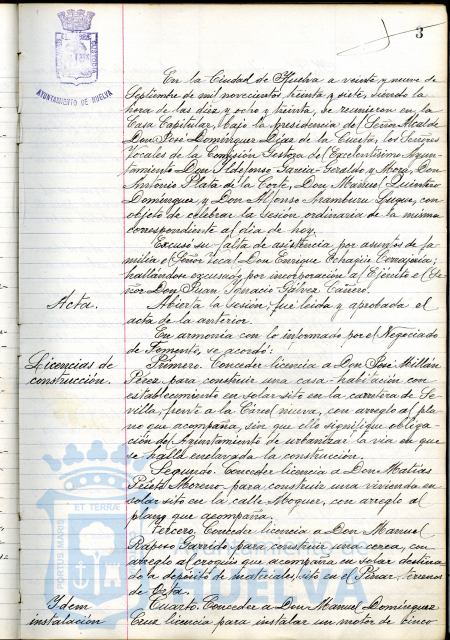 3
AYUNTAMIENTO DE HUELVA
En la Ciudad de Huelva a veinte y nueve de
Septiembre de mil novecientos treinta y siete, siendo la
hora de las diez y ocho y treinta, se reunieron en la
Casa Capitular, bajo la presidencia del Señor Alcalde
Don José Domínguez Díaz de la Cuesta, los Señores
Vocales de la Comisión Gestora del Excelentísimo Ayun-
tamiento Don Ildefonso García-Geraldo y Mora, Don
Antonio Plata de la Corte, Don Manuel Quintero
Domínguez, y Don Alfonso Aramburu Luque, con
objeto de celebrar la sesión ordinaria de la misma
correspondiente al día de hoy.
Excusó su falta de asistencia, por asuntos de fa-
milia el Señor Vocal Don Enrique Echagüe;
hallándose excusado por incorporación al Ejército el Se-
ñor Don Juan Ignacio Gálvez Cañero.
Acta.
Abierta la sesión, fué leída y aprobada el
acta de la anterior.
En armonía con lo informado por el Negociado
de Fomento, se acordó:
Licencias de
construcción.
Primero. Conceder licencia a Don José Millán
Pérez para construir una casa-habitación con
establecimiento en solar sito en la carretera de Se-
villa, frente a la Cárcel nueva, con arreglo al pla-
no que acompaña, sin que ello signifique obliga-
ción del Ayuntamiento de urbanizar la vía en que
se halla enclavada la construcción.
Segundo. Conceder licencia a Don Matías
Prieto Moreno para construir una vivienda en
solar sito en la calle Moguer, con arreglo al
plano que acompaña.
Tercero. Conceder licencia a Don Manuel
Raposo Garrido para construir una cerca, con
arreglo al croquis que acompaña en solar destina
do a depósito de materiales, sito en el Pinar, terrenos
de
Idem
instalación
Cuarto. Conceder a Don Manuel Domínguez
Cruz licencia para instalar un motor de cinco
PORTUS MARIS ET TERRÆ
HUELVA